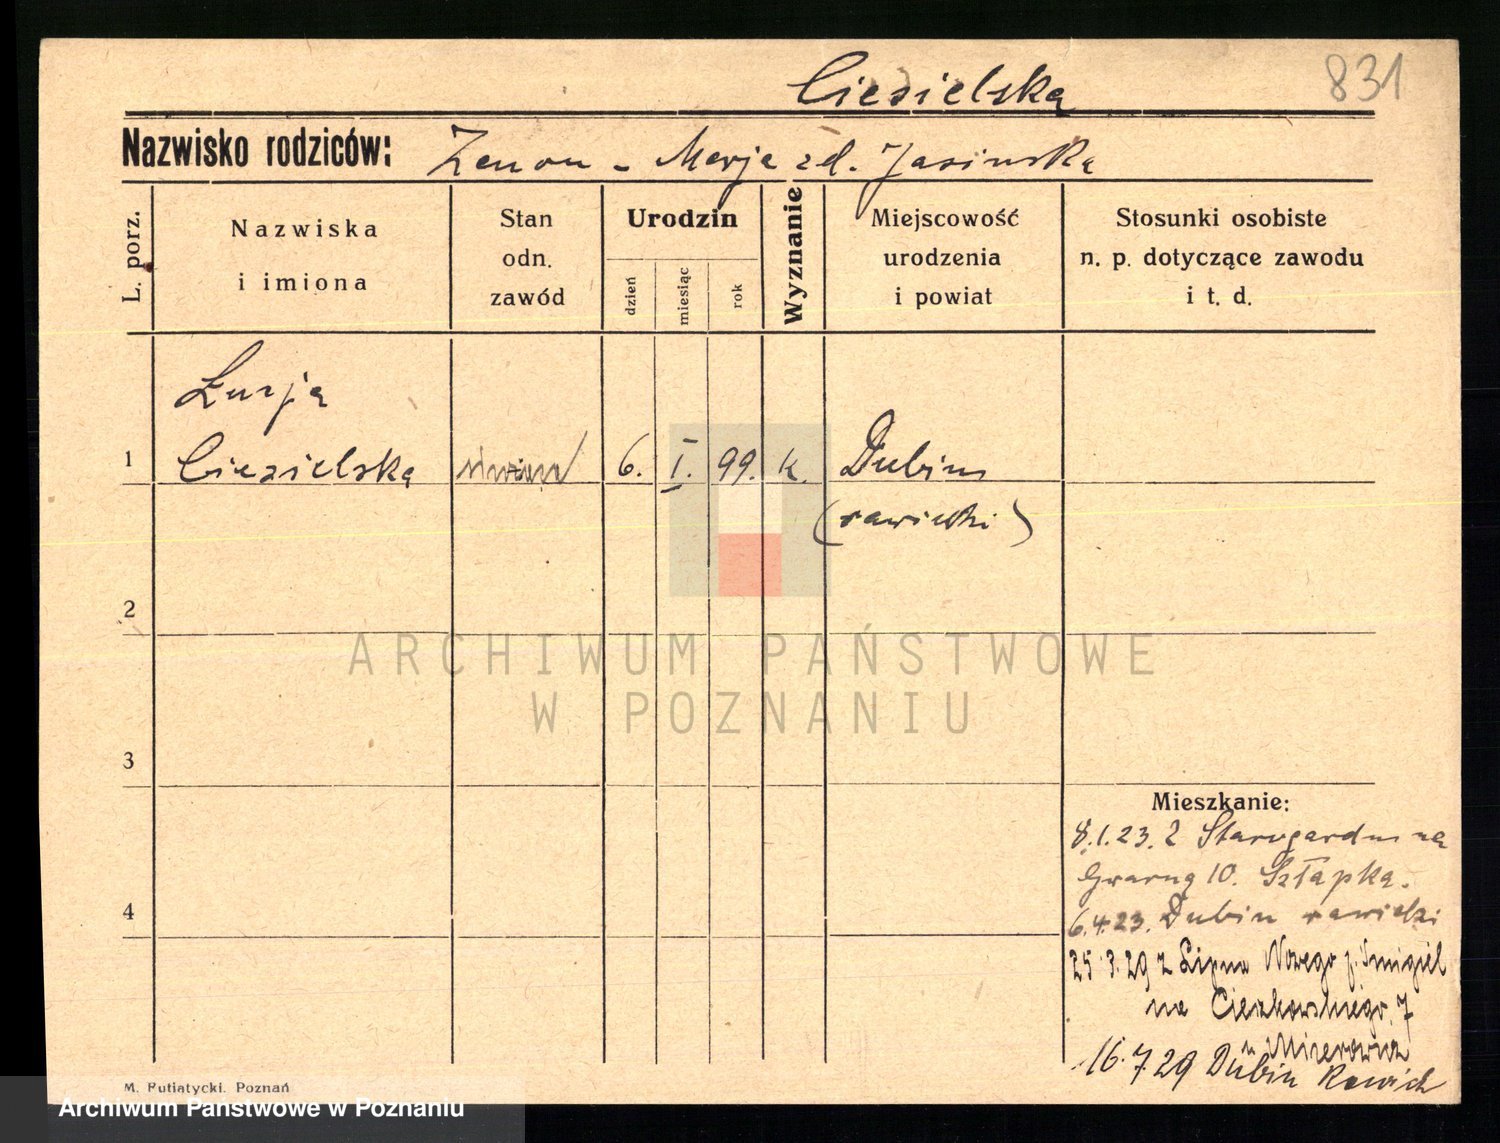 Ciesielska 831
Nazwisko rodziców: Zenon - Marja zd. Jasinska
L. porz.
Nazwiska
i imiona
Stan
odn.
zawód
Urodzin
dzień
miesiąc
rok
Wyznanie
Miejscowość
urodzenia
i powiat
Stosunki osobiste
n. p. dotyczące zawodu
i t. d.
Łucja
1 Ciesielska 6. I. 99. k. Dubin
(rawicki)
2
ARCHIWUM PAŃSTWOWE
W POZNANIU
3
Mieszkanie:
8.1.23. z Starogardu na
Gwarną 10. Szłapka.
4
6.4.23. Dubin rawicki
25.3.29 z Lipna Nowego p. Śmigiel
na Cieszkowskiego 7
u
16.7.29 Dubin Rawich
M. Putiatycki. Poznań
Archiwum Państwowe w Poznaniu